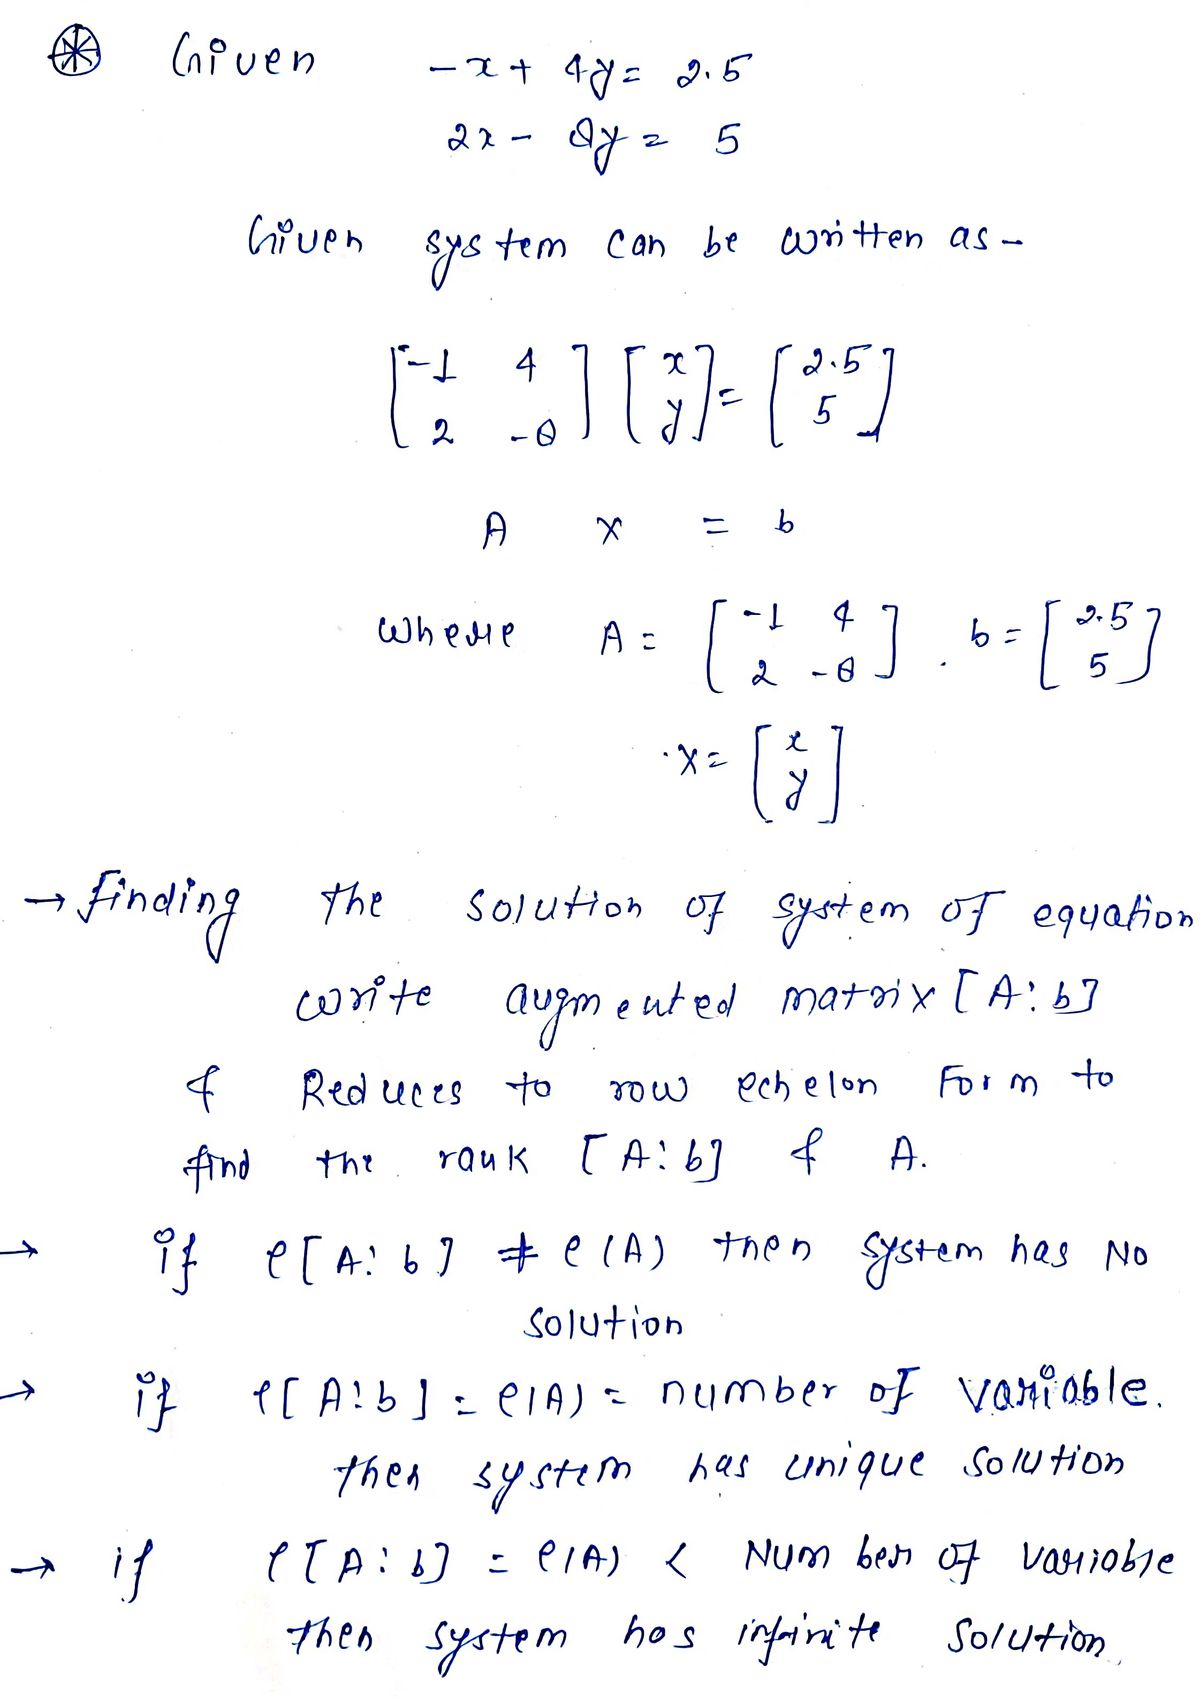 Given -x + 4y = 2.5
2x - θy = 5
Given system can be written as -
[-1 4
2 -θ] [x
y] = [2.5
5]
A X = b
where A = [-1 4
2 -θ], b = [2.5
5]
X = [x
y]
→ finding the solution of system of equation
write augmented matrix [A:b]
& Reduces to row echelon Form to
find the rank [A:b] & A.
→ if ρ[A:b] ≠ ρ(A) then system has No
solution
→ if ρ[A:b] = ρ(A) = number of variable.
then system has unique solution
→ if ρ[A:b] = ρ(A) < Number of variable
then system has infinite solution.